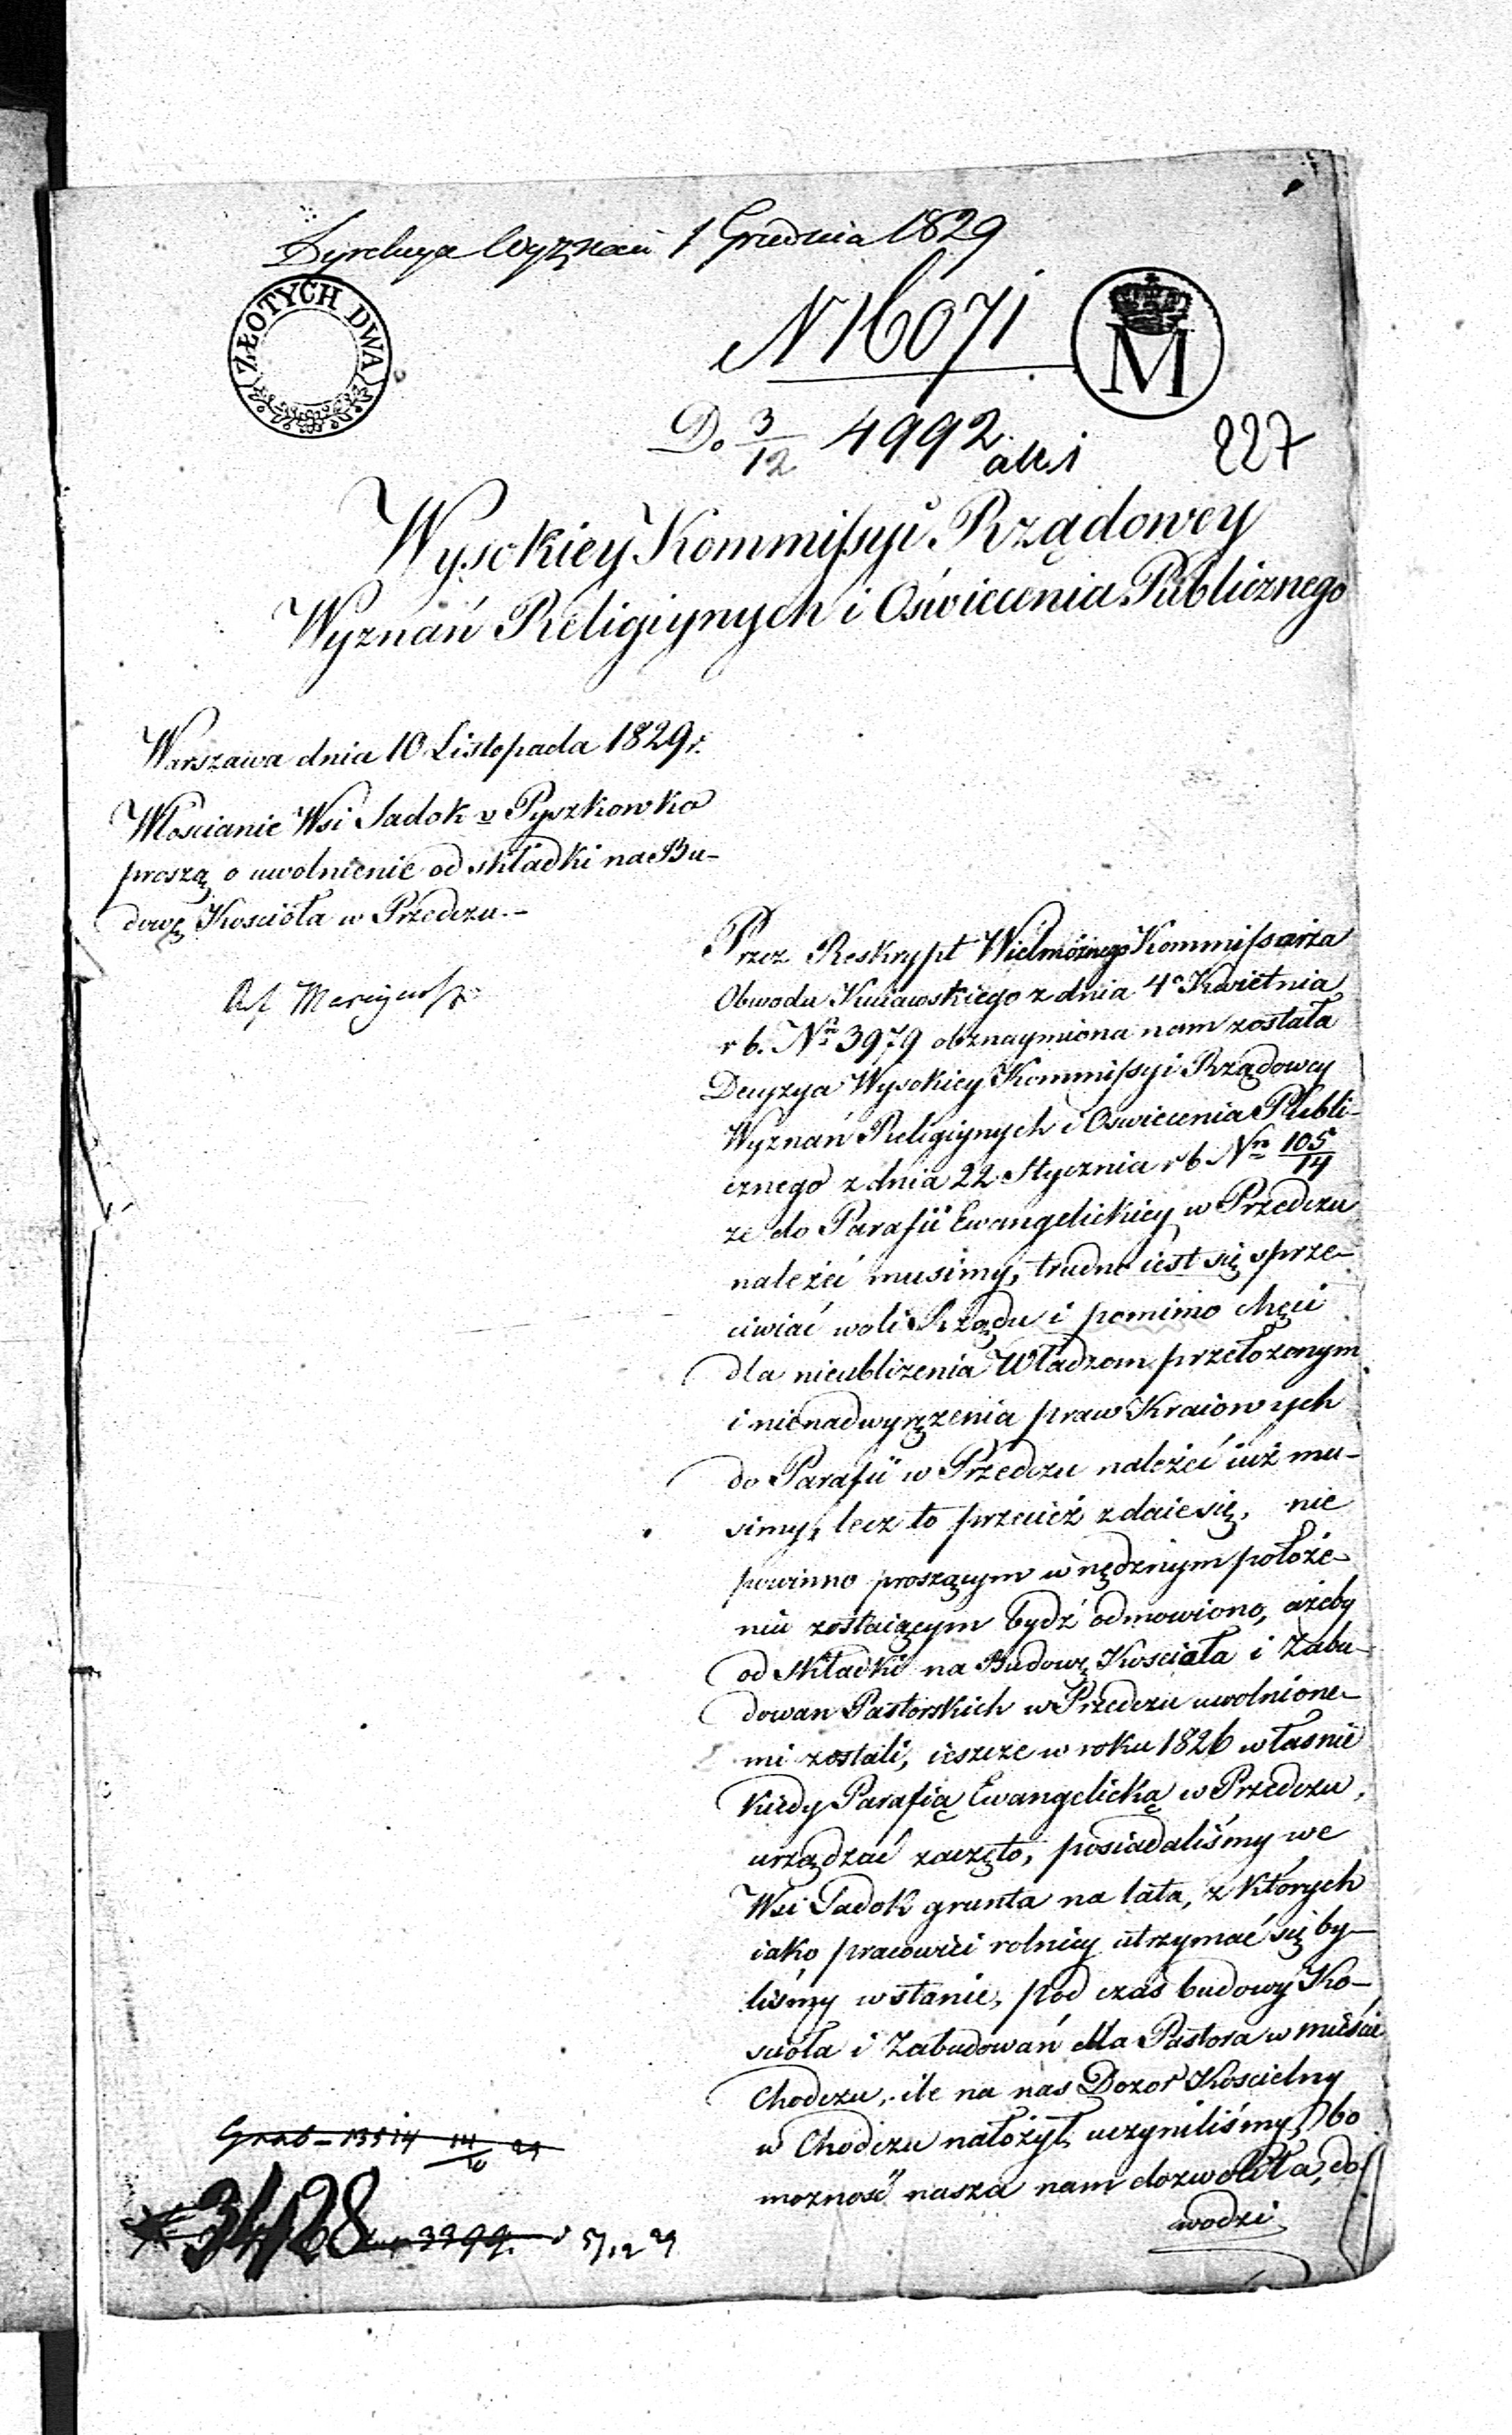 Dyrekcya Wyznań 1 Grudnia 1829
ZŁOTYCH DWA
N 16071
M
Do 3/12 4992
227
Wysokiey Kommissyi Rządowey
Wyznań Religiynych i Oświecenia Publicznego
Warszawa dnia 10 Listopada 1829 r.
Włoscianie Wsi Sadok v Pyszkowka
proszą o uwolnienie od składki na Bu-
dowę Kościoła w Przedczu.-
Przez Reskrypt Wielmożnego Kommissarza
Obwodu Kuiawskiego z dnia 4o Kwietnia
r b. Nro 3979 obznaymiona nam została
Decyzya Wysokiey Kommissyi Rządowey
Wyznań Religiynych i Oswiecenia Publi-
cznego z dnia 22 Stycznia r b Nro 105/14
że do Parafii Ewangelickiey w Przedczu
należeć musimy, trudno iest się sprze-
ciwiać woli Rządu i pomimo chęci
dla nieubliżenia Władzom przełożonym
i nienadwyrężenia praw Kraiowych
do Parafii w Przedczu należeć iuż mu-
simy, lecz to przecież zdaie się, nie
powinno proszącym w nędznym położe-
niu zostaiącym bydź odmowiono, ażeby
od składki na Budowę Kosciała i Zabu-
dowan Pastorskich w Przedczu uwolnione-
mi zostali, ieszcze w roku 1826 własnie
kiedy Parafią Ewangelicką w Przedczu,
urządzać zaczęto, posiadaliśmy we
Wsi Sadok grunta na lata, z których
iako pracowici rolnicy utrzymać się by-
liśmy wstanie, pod czas budowy Ko-
scioła i Zabudowań dla Pastora w mieście
Chodczu, ile na nas Dozor Kościelny
w Chodczu nałożył uczyniliśmy, bo
mozność nasza nam dozwoliła, do
wodzi
34128
3399.